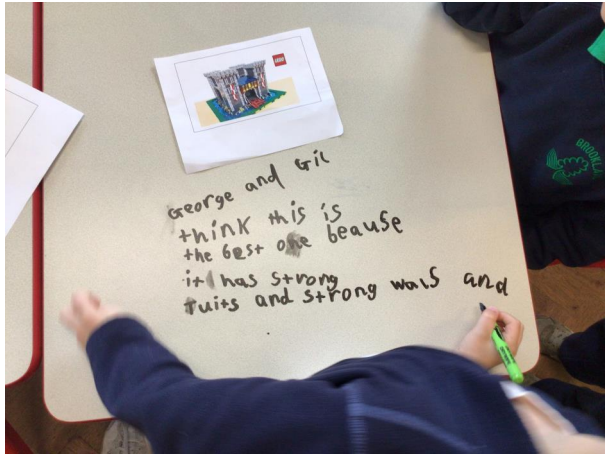 LEGO
George and Gil
think this is
the best one beause
it has strong
ruits and strong wals and
BROOKLA